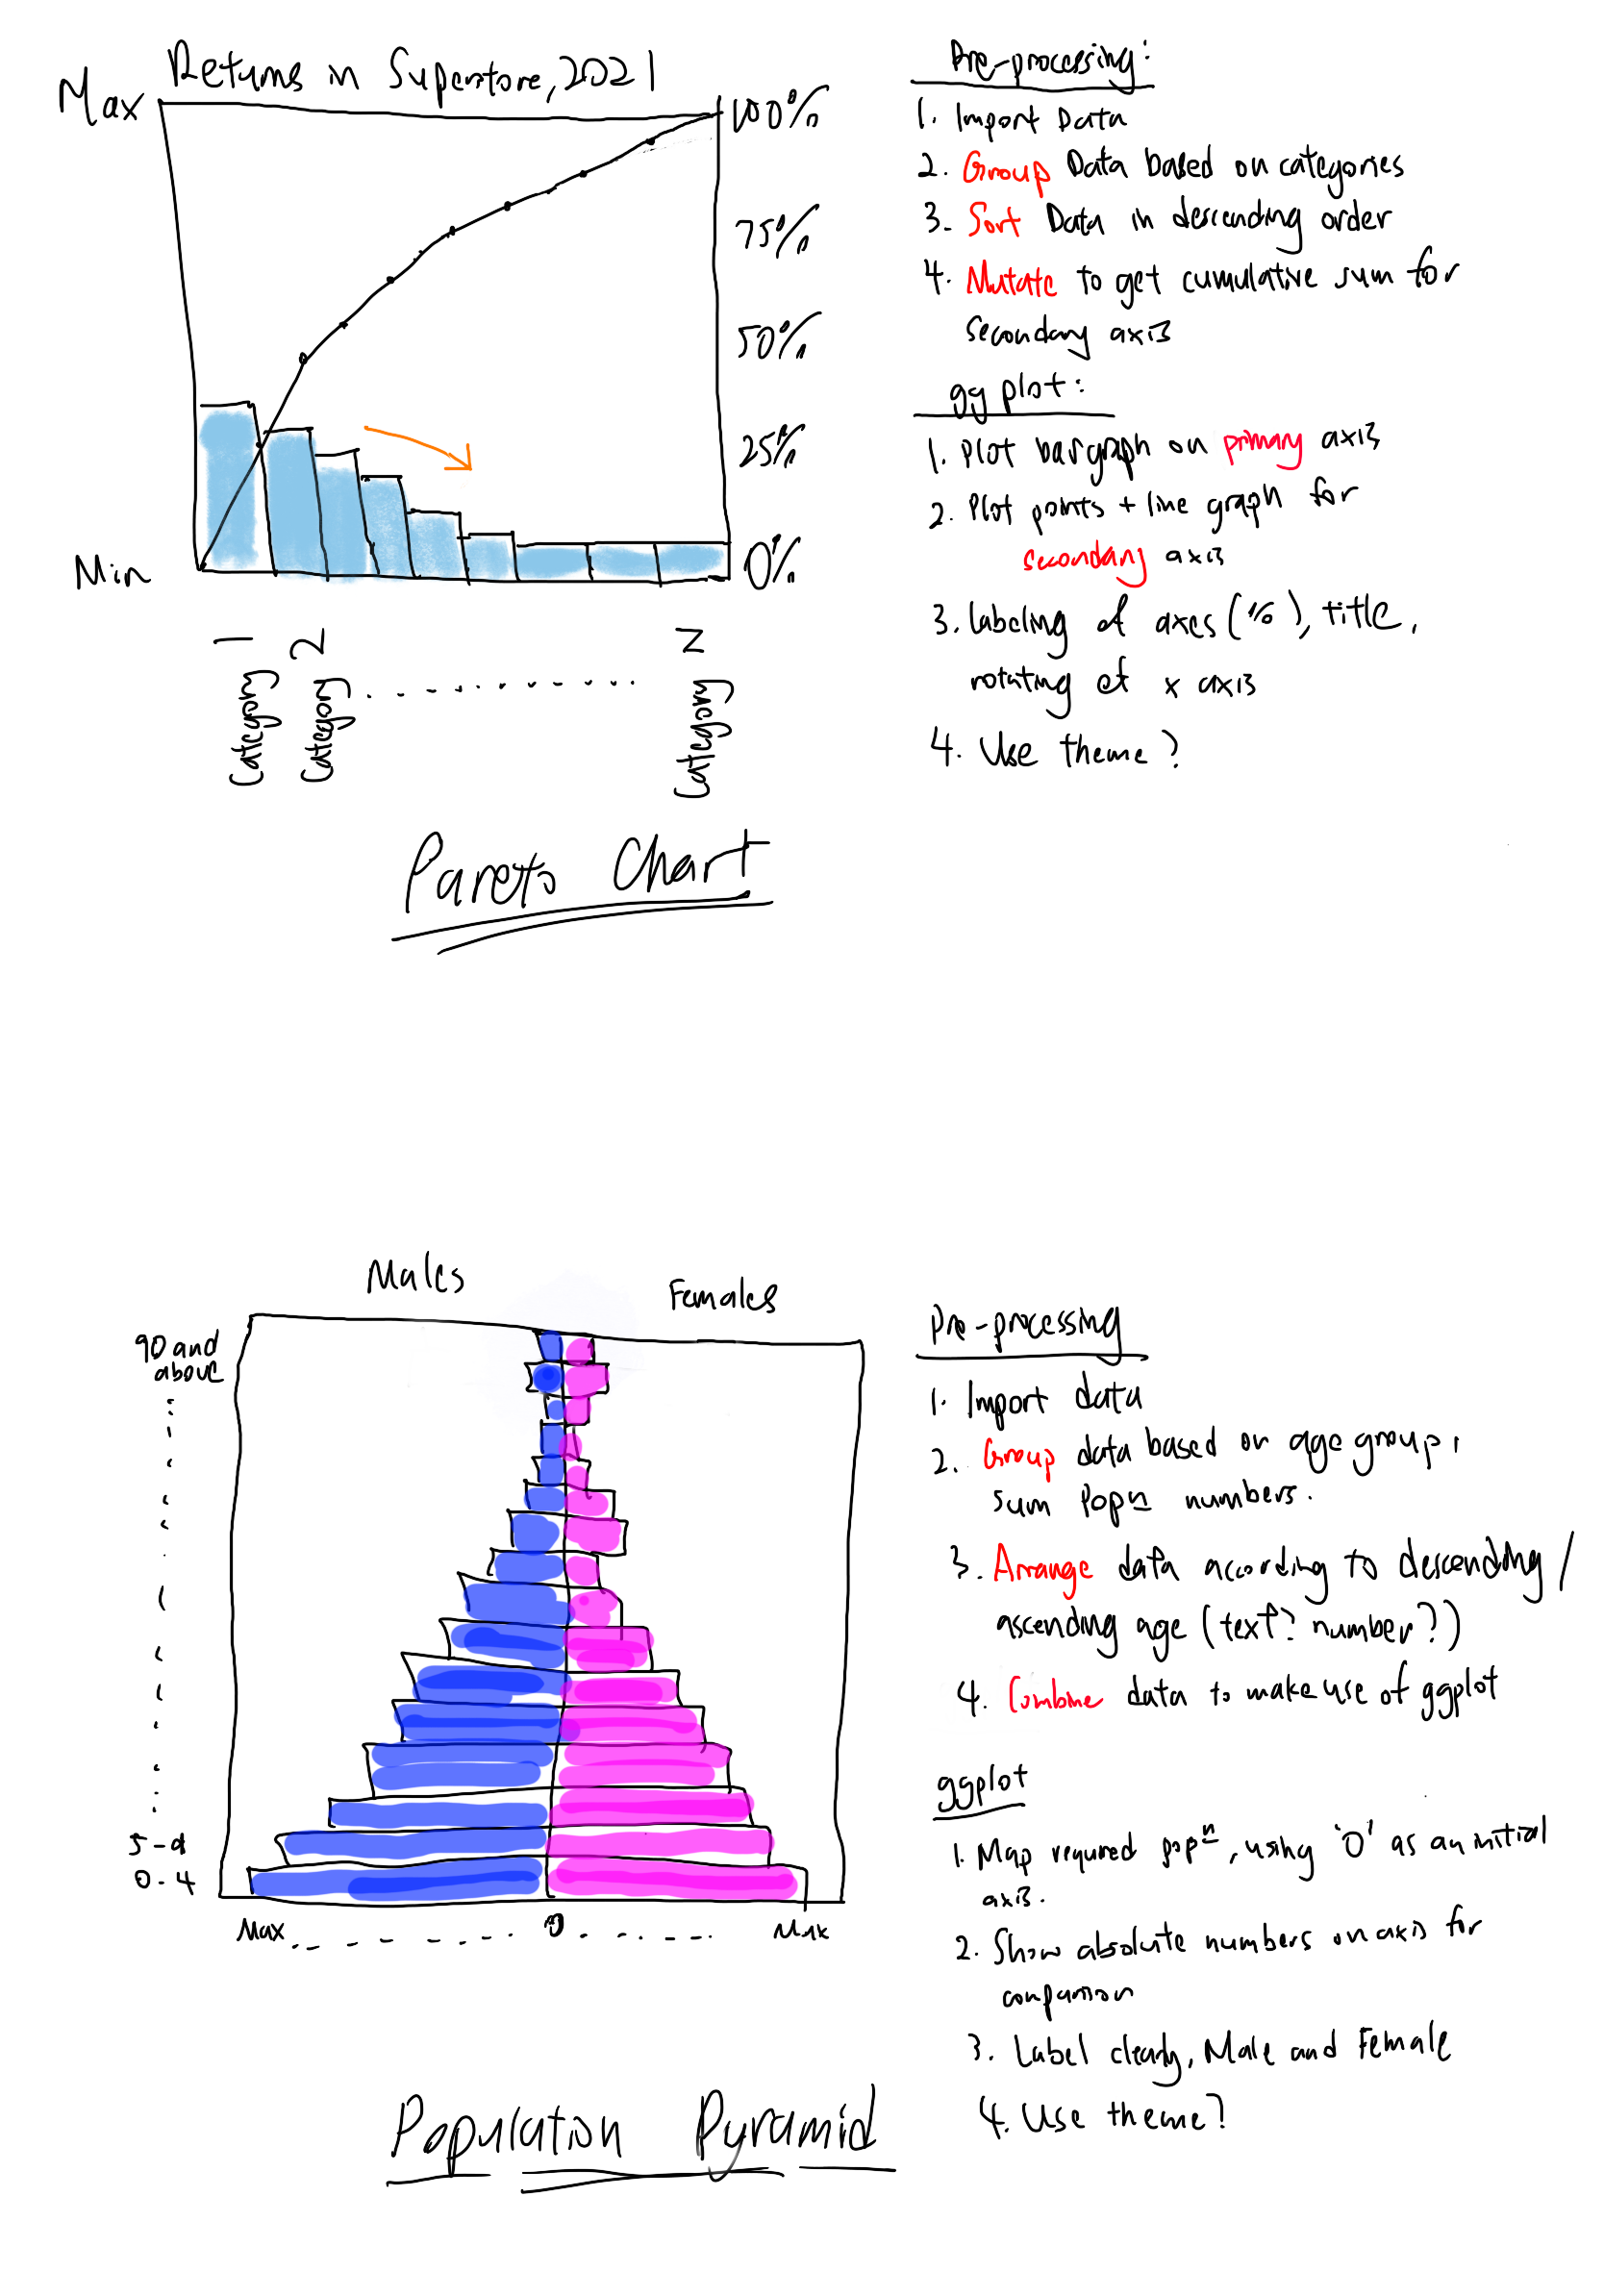 Returns in Superstore, 2021
Max
100%
75%
50%
25%
Min
0%
Category 1
Category 2
Category N
Pareto Chart
Pre-processing:
1. Import Data
2. Group Data based on categories
3. Sort Data in descending order
4. Mutate to get cumulative sum for
secondary axis
ggplot:
1. Plot bar graph on primary axis
2. Plot points + line graph for
secondary axis
3. Labeling of axes (%), title,
rotating of x axis
4. Use theme?
Males
Females
90 and
above
5-9
0-4
Max
0
Max
Population Pyramid
Pre-processing
1. Import data
2. Group data based on age group,
sum Popn numbers.
3. Arrange data according to descending/
ascending age (text? number?)
4. Combine data to make use of ggplot
ggplot
1. Map required popn, using '0' as an initial
axis.
2. Show absolute numbers on axis for
comparison
3. Label clearly, Male and Female
4. Use theme?